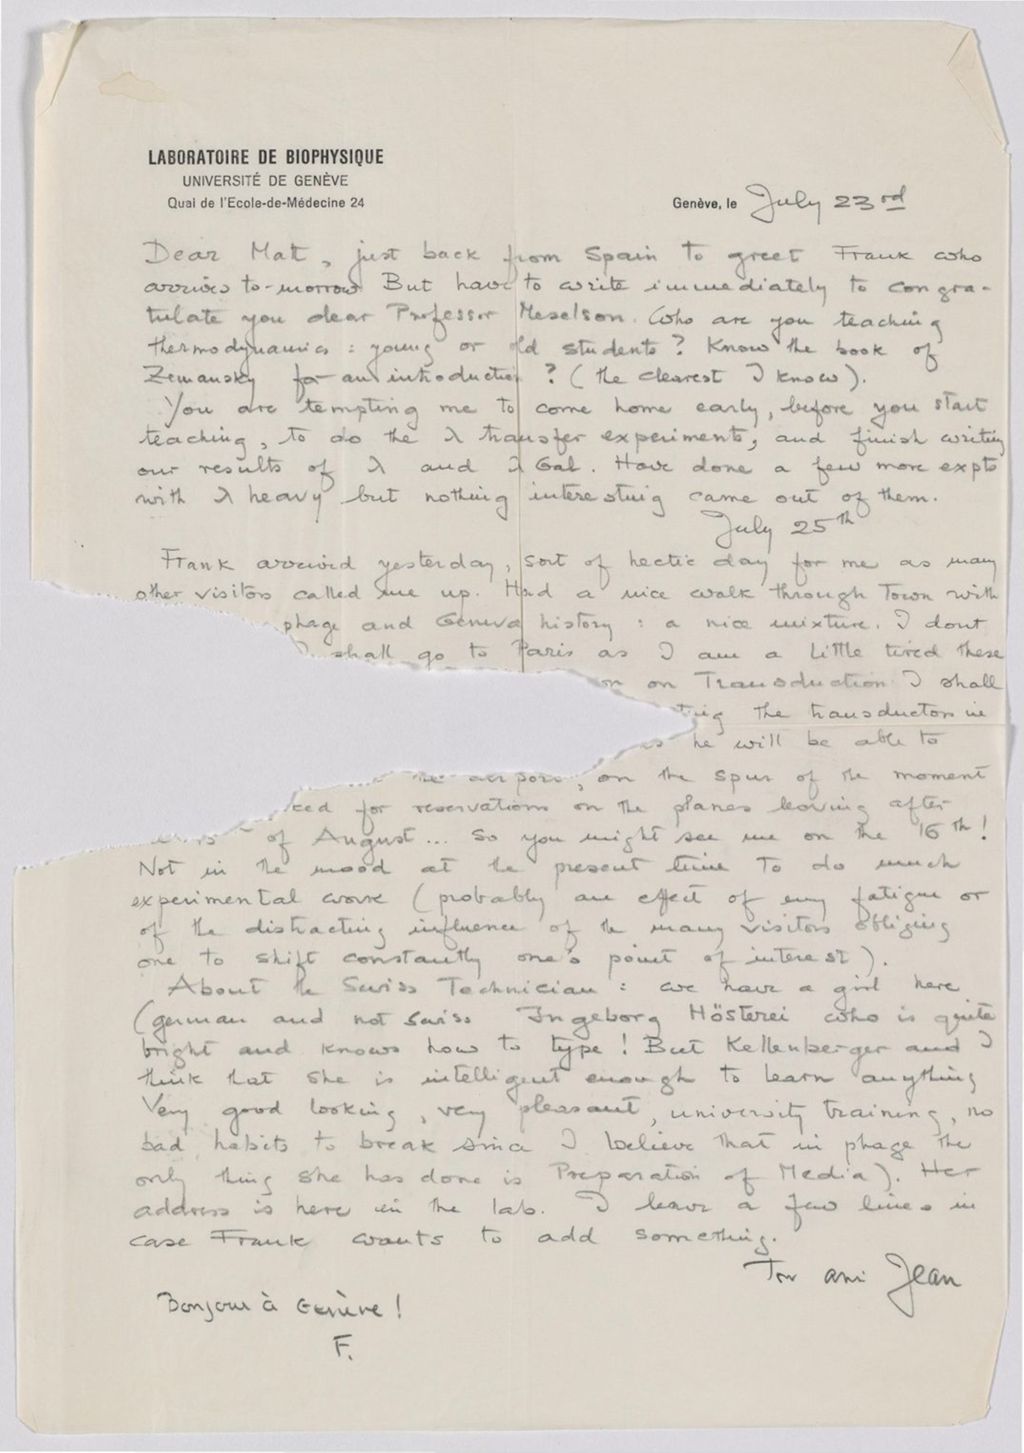 LABORATOIRE DE BIOPHYSIQUE
UNIVERSITÉ DE GENÈVE
Quai de l'Ecole-de-Médecine 24
Genève, le July 23rd
Dear Matt, just back from Spain to greet Frank who
arrives to-morrow But have to write immediately to congra-
tulate you dear Professor Meselson. Who are you teaching
thermodynamics : young or old students ? Know the book of
Zemansky for an introduction ? ( the clearest I know ).
You are tempting me to come home early, before you start
teaching, to do the λ transfer experiments, and finish writing
our results of λ and λ Gal. Have done a few more expts
with λ heavy but nothing interesting came out of them.
July 25th
Frank arrived yesterday, sort of hectic day for me as many
other visitors called me up. Had a nice walk through Town with
phage and Geneva history : a nice mixture. I dont
I shall go to Paris as I am a little tired these
on on Transduction I shall
the transductor in
he will be able to
the airport, on the spur of the moment
for reservations on the planes leaving after
of August ... So you might see me on the 16th !
Not in the mood at the present time to do much
experimental work ( probably an effect of my fatigue or
of the distracting influence of the many visitors obliging
one to shift constantly one's point of interest ).
About the Swiss Technician : we have a girl here
( german and not Swiss Ingeborg Hösterei who is quite
bright and knows how to type ! But Kellenberger and I
think that she is intelligent enough to learn anything
Very good looking, very pleasant, university training, no
bad habits to break since I believe that in phage the
only thing she has done is Preparation of Media ). Her
address is here in the lab. I leave a few lines in
case Frank wants to add something.
Ton ami Jean
Bonjour à Genève !
F.